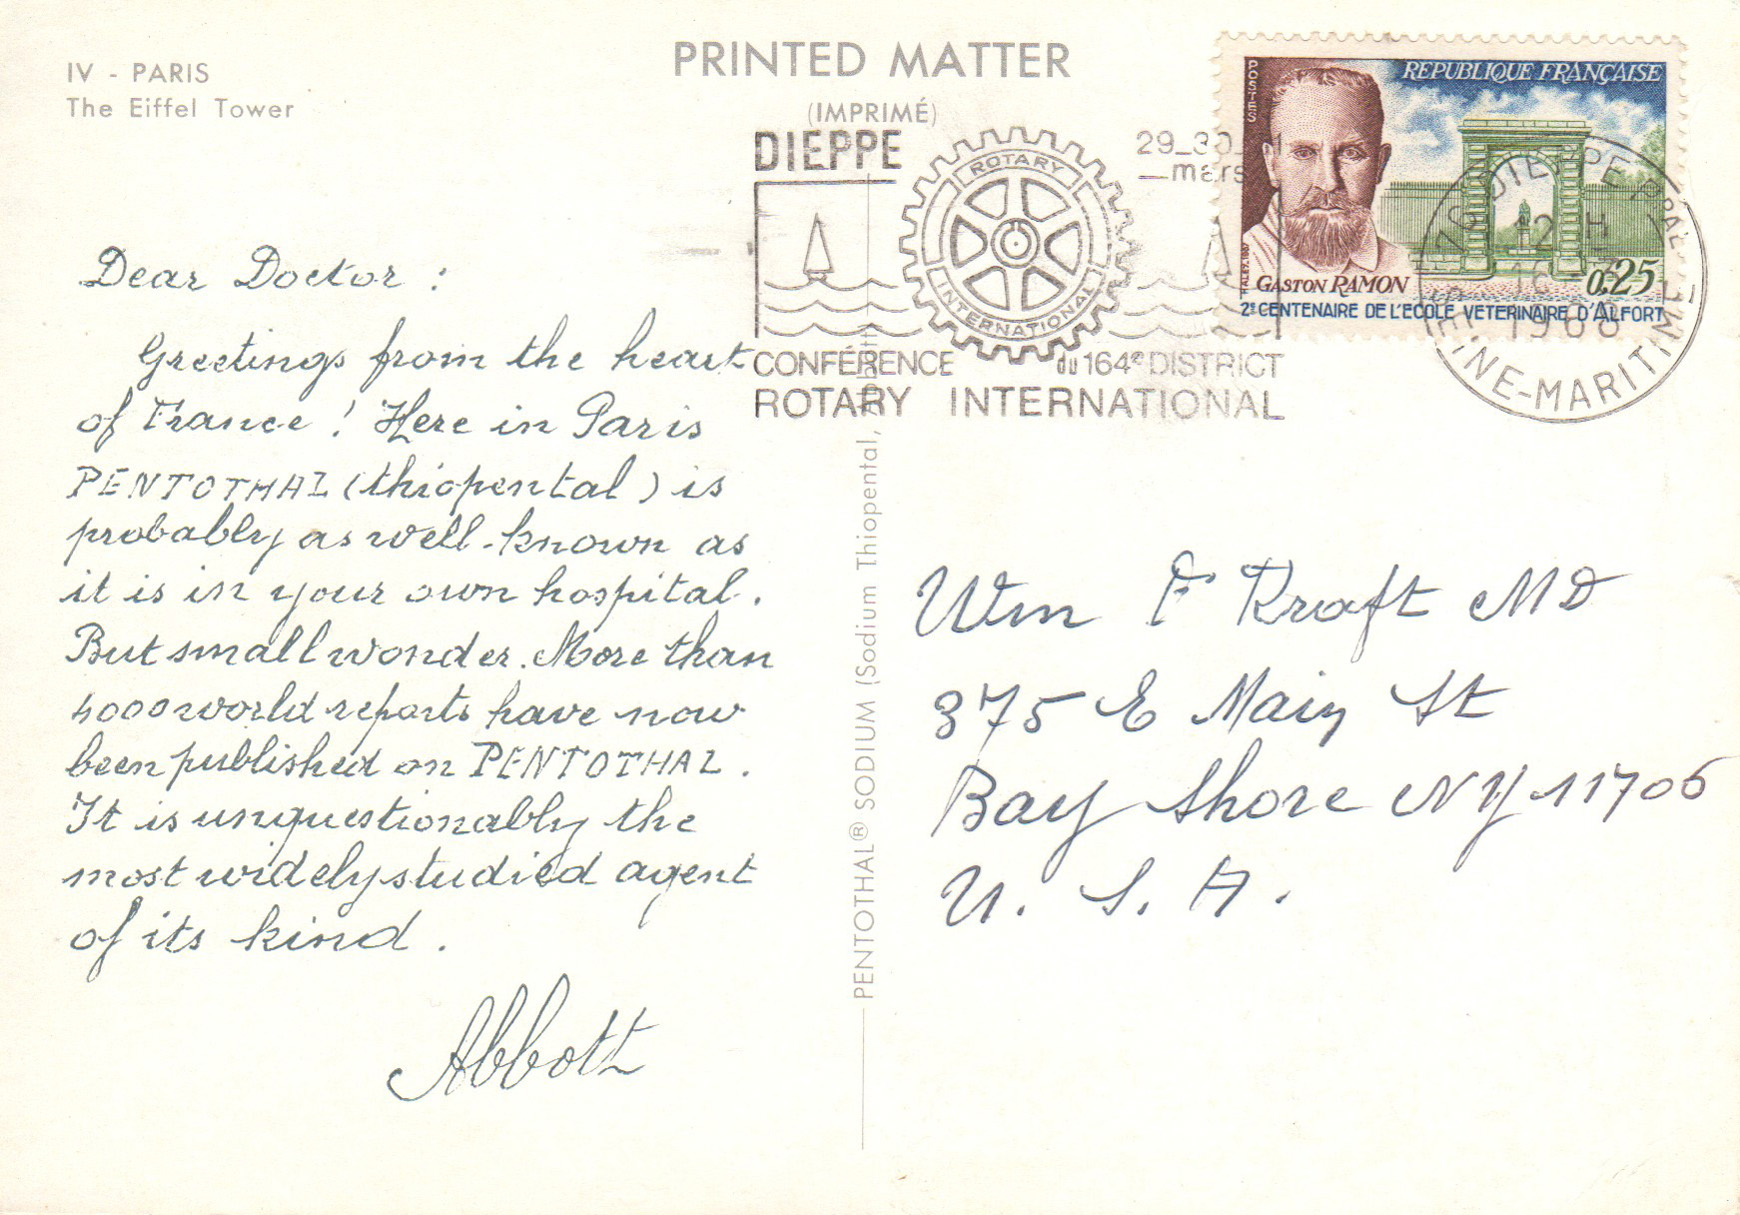 IV - PARIS
The Eiffel Tower
PRINTED MATTER
(IMPRIMÉ)
DIEPPE
29_30
mars
ROTARY
INTERNATIONAL
CONFÉRENCE du 164e DISTRICT
ROTARY INTERNATIONAL
POSTES
REPUBLIQUE FRANÇAISE
GASTON RAMON
0,25
2e CENTENAIRE DE L'ECOLE VETERINAIRE D'ALFORT
76 DIEPPE PPAL
12 H
16
1968
SEINE-MARITIME
Dear Doctor :
Greetings from the heart
of France ! Here in Paris
PENTOTHAL (thiopental) is
probably as well-known as
it is in your own hospital.
But small wonder. More than
4000 world reports have now
been published on PENTOTHAL.
It is unquestionably the
most widely studied agent
of its kind.
Abbott
PENTOTHAL® SODIUM (Sodium Thiopental,
Wm F Kraft MD
375 E Main St
Bay Shore NY 11706
U. S. A.